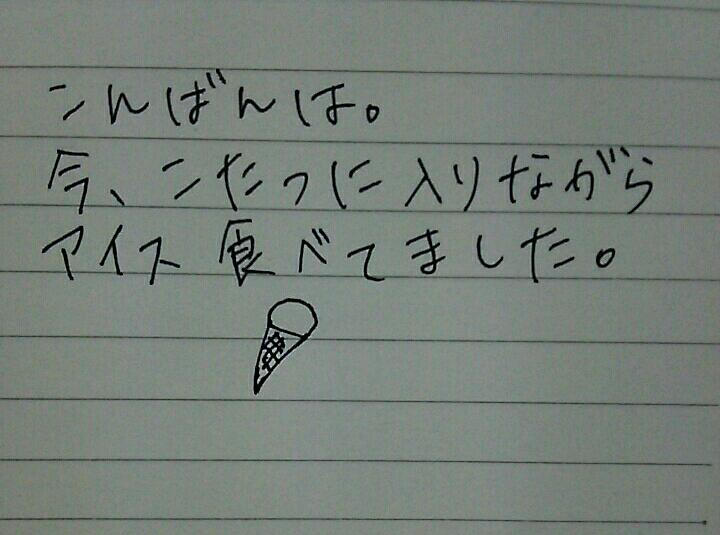 こんばんは。
今、こたつに入りながら
アイス食べてました。